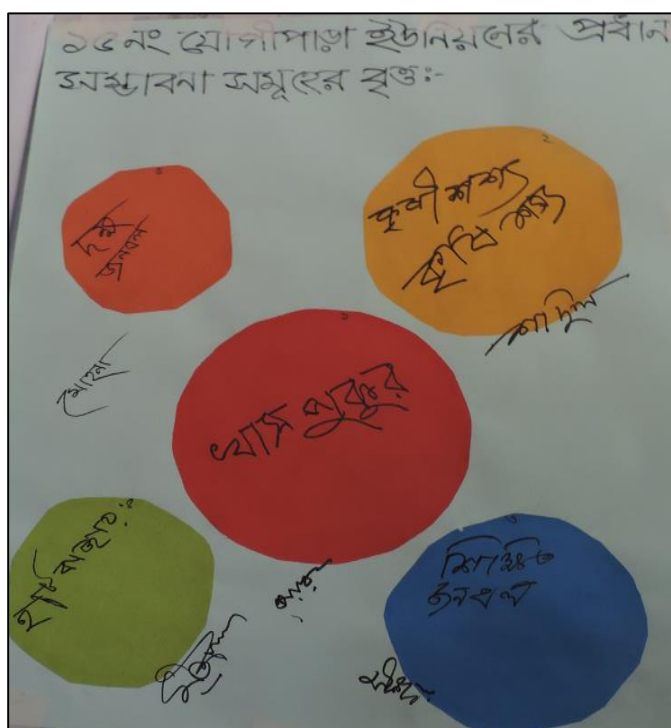 ১৫নং যোগীপাড়া ইউনিয়নের প্রধান
সম্ভাবনা সমূহের বৃত্ত:-
দক্ষ
জনবল
কৃষী শস্য
কৃষি শস্য
মোহনা
খাস পুকুর
হাট বাজার:
শিক্ষিত
জনবল